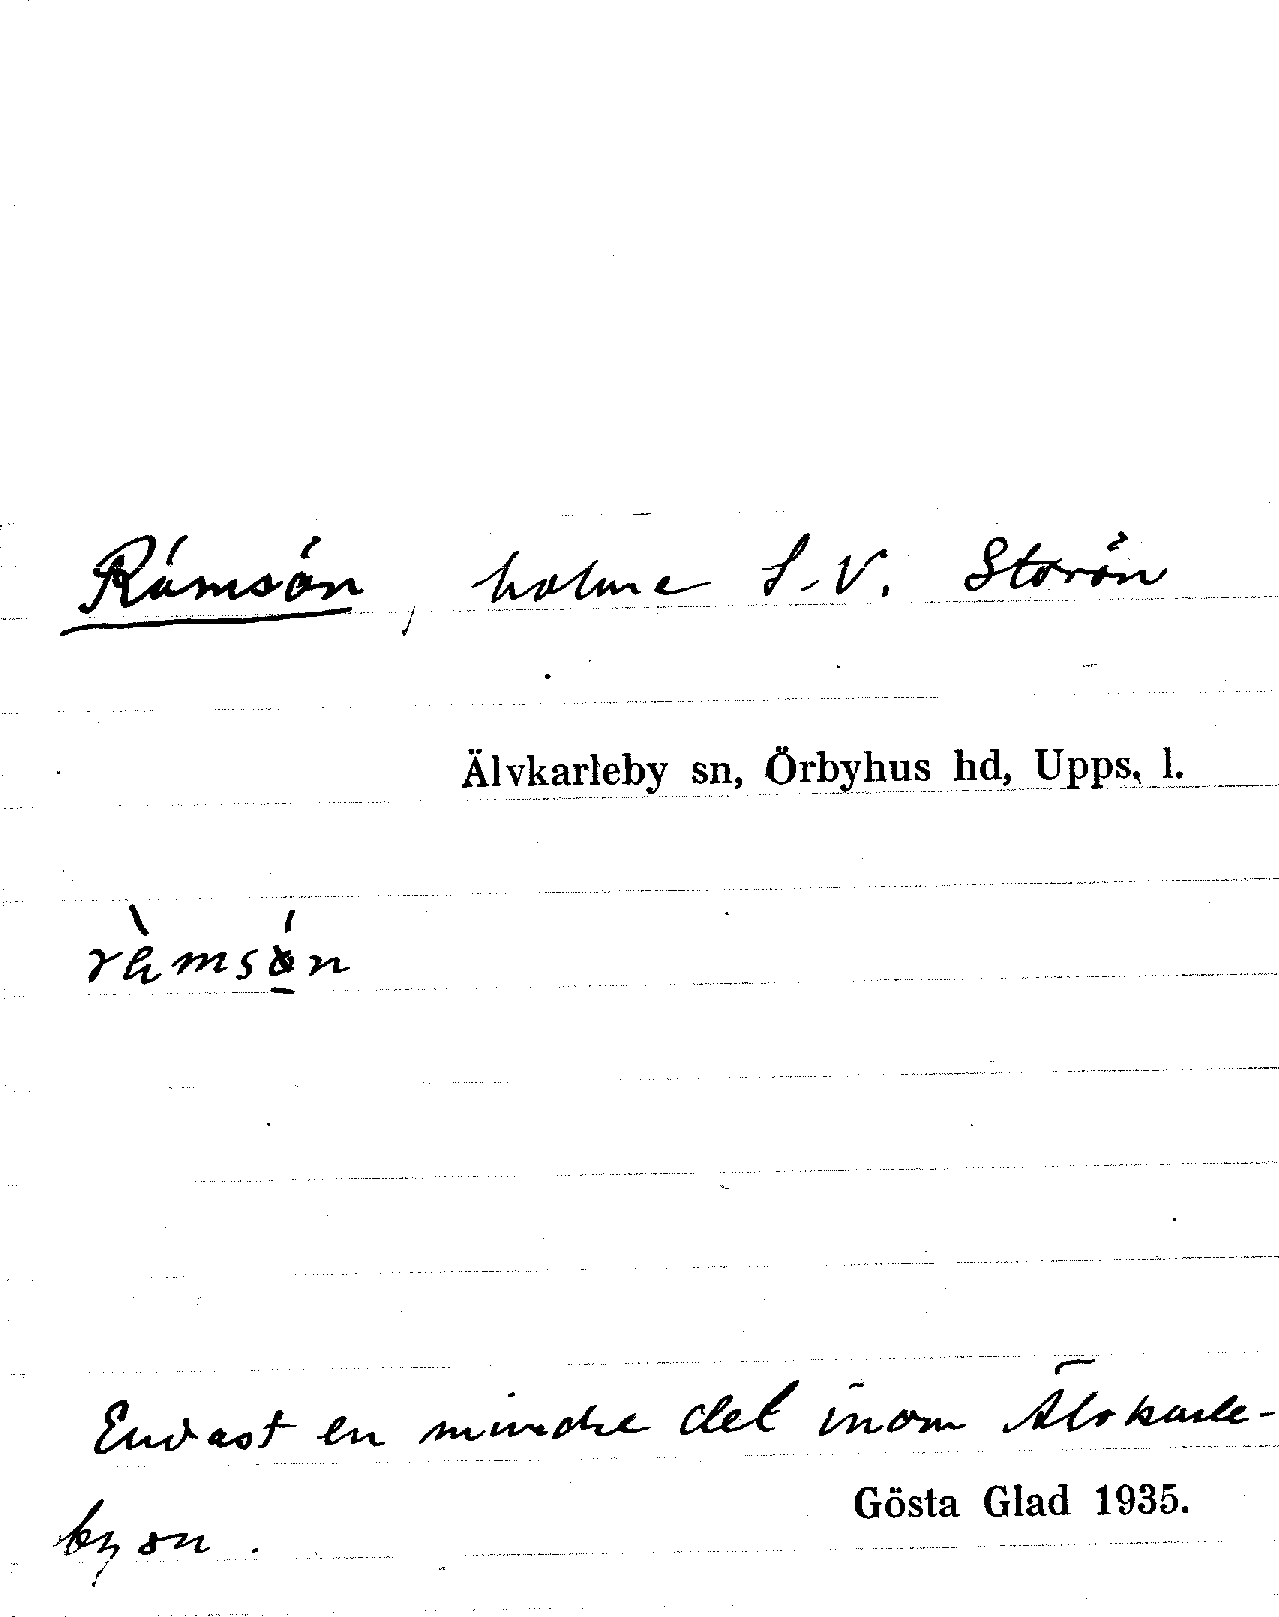 Råmsön, holme S.V. Storön
Älvkarleby sn, Örbyhus hd, Upps. l.
Endast en mindre del inom Älvkarle-
Gösta Glad 1935.
by sn.